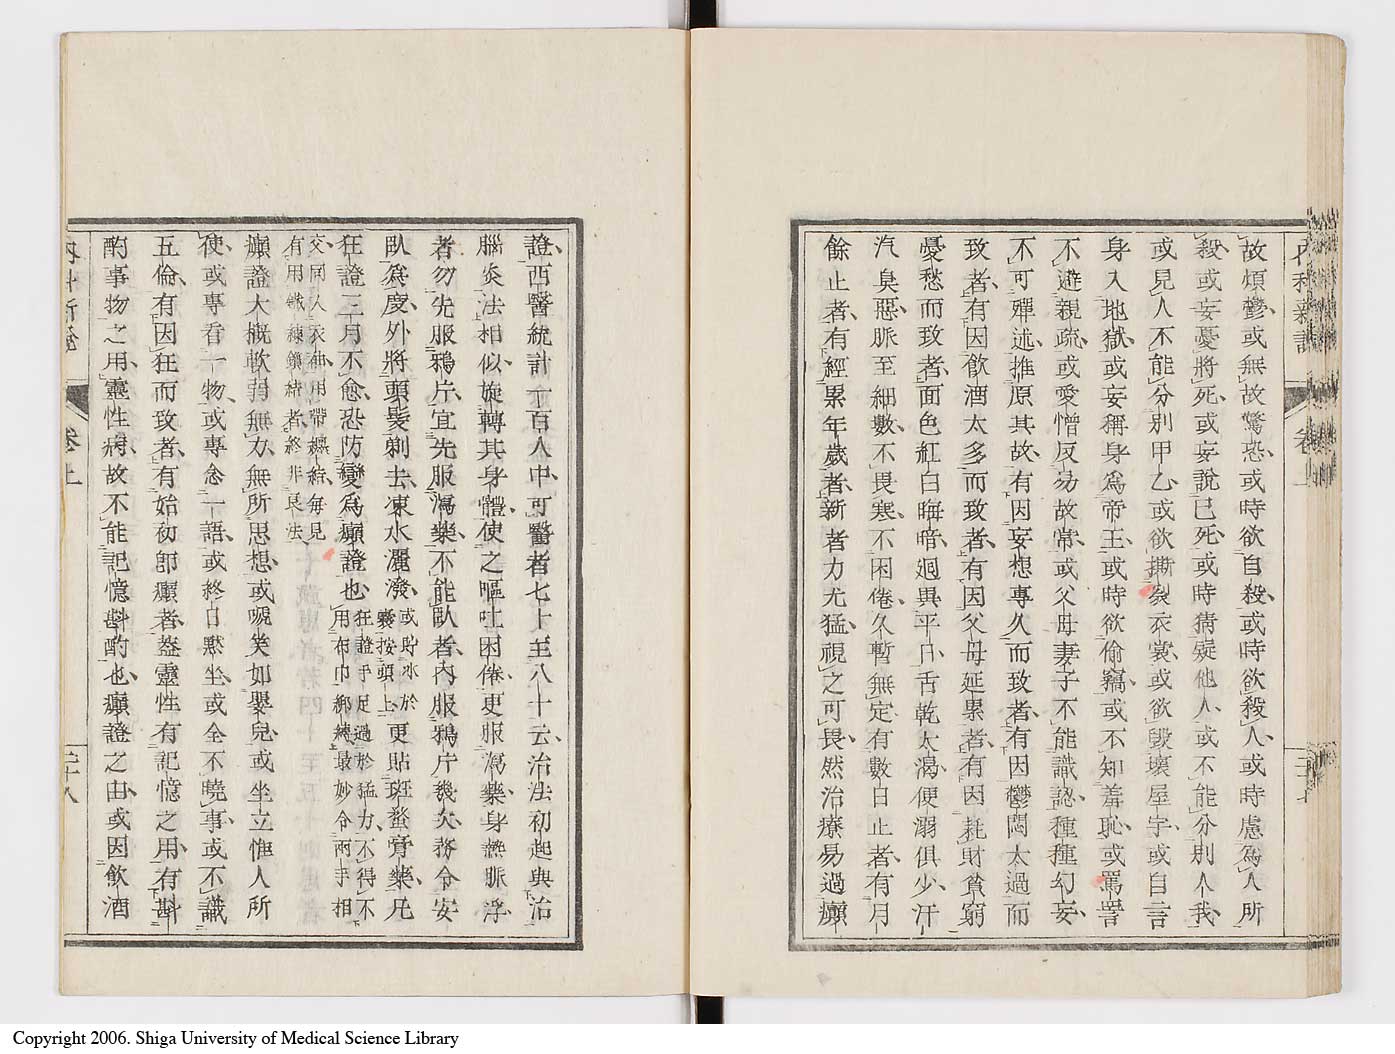 故煩鬱或無故驚恐或時欲自殺或時欲殺人或時慮爲人所
殺或妄憂將死或妄說已死或時猜疑他人或不能分別人我
或見人不能分別甲乙或欲撕裂衣裳或欲毀壞屋宇或自言
身入地獄或妄稱身爲帝王或時欲偷竊或不知羞恥或罵詈
不避親疏或愛憎反乎故常或父母妻子不能識認種種幻妄
不可殫述推原其故有因妄想專久而致者有因鬱悶太過而
致者有因飮酒太多而致者有因父母延累者有因耗財貧窮
憂愁而致者面色紅白晦暗廻異平日舌乾太渴便溺俱少汗
汽臭惡脈至細數不畏寒不困倦久暫無定有數日止者有月
餘止者有經累年歲者新者力尤猛視之可畏然治療易過癲
內科新說
卷上
三十七
證西醫統計一百人中可醫者七十至八十云治法初起與治
腦炎法相似旋轉其身體使之嘔吐困倦更服瀉藥身熱脈浮
者勿先服鴉片宜先服瀉藥不能臥者內服鴉片幾次務令安
臥爲度外將頭髮剃去凍水灑潑或貯冰於囊按頭上更貼斑蝥膏藥凡
狂證三月不愈恐防變爲癲證也狂證手足過於猛力不得不用布巾綁縛最妙令兩手相
交同入衣袖用帶纏結每見有用鐵練鎖綣者終非良法
癲證大概軟弱無力無所思想或嘅笑如嬰兒或坐立惟人所
使或專看一物或專念一語或終日默坐或全不曉事或不識
五倫有因狂而致者有始初卽癲者蓋靈性有記憶之用有斟
酌事物之用靈性病故不能記憶斟酌也癲證之由或因飮酒
內科新說
卷上
三十八
Copyright 2006. Shiga University of Medical Science Library